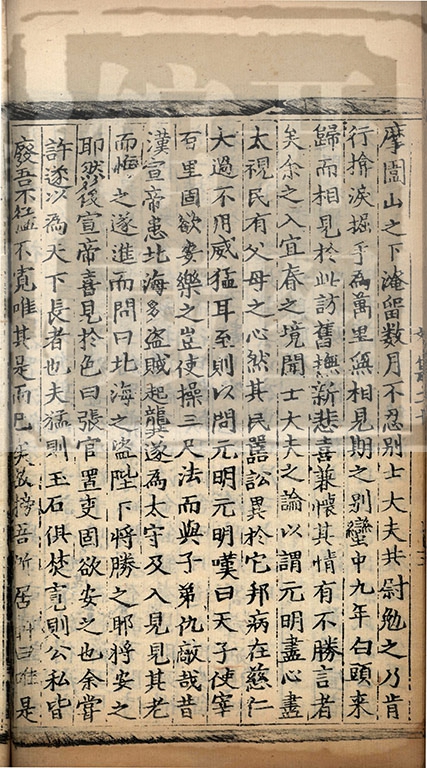 摩圍山之下淹留数月不忍別士大夫共尉勉之乃肯
行揜淚握手為萬里無相見期之別蠻中九年白頭来
歸而相見於此訪舊撫新悲喜兼懷其情有不勝言者
矣余之入宜春之境聞士大夫之論以謂元明盡心盡
太視民有父母之心然其民嚚訟異於它邦病在慈仁
大過不用威猛耳至則以問元明元明嘆曰天子使宰
百里固欲安樂之豈使操三尺法而與子弟仇敵哉昔
漢宣帝患北海多盜賊起龔遂為太守及入見見其老
而悔之遂進而問曰北海之盗陛下将勝之耶将安之
耶然後宣帝喜見於色曰張官置吏固欲安之也余嘗
許遂以為天下長者也夫猛則玉石俱焚寛則公私皆
廢吾不猛不寛唯其是而已矣故榜吾所居軒曰唯是